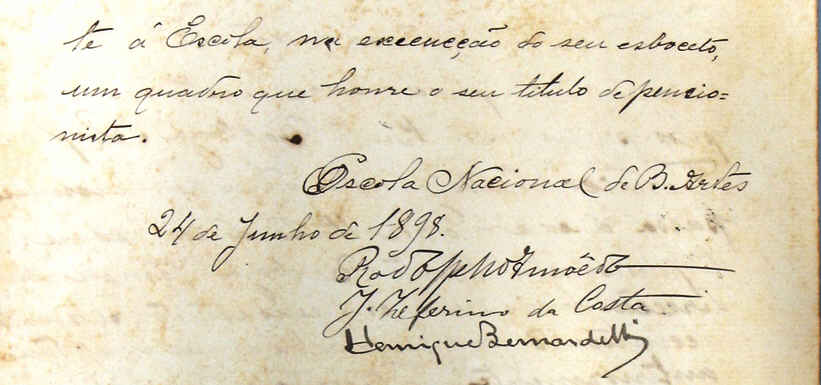 te á Escola, na execucção do seu esboceto,
um quadro que honre o seu titulo de pensio=
nista.
Escola Nacional de B. Artes
24 de Junho de 1898.
Rodolpho Amoêdo
J. Zeferino da Costa
Henrique Bernardelli